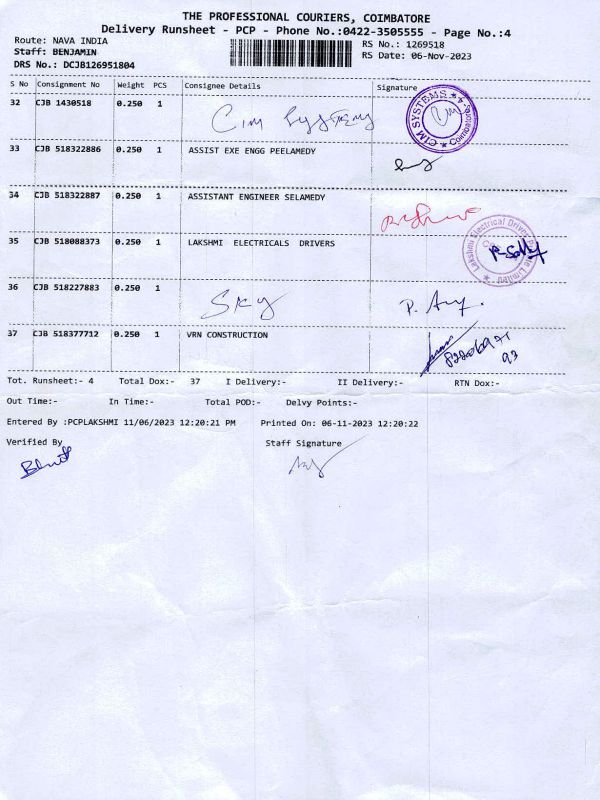 THE PROFESSIONAL COURIERS, COIMBATORE
Delivery Runsheet - PCP - Phone No.:0422-3505555 - Page No.:4
Route: NAVA INDIA
Staff: BENJAMIN
DRS No.: DCJB126951804
RS No.: 1269518
RS Date: 06-Nov-2023
S No Consignment No Weight PCS Consignee Details Signature
32 CJB 1430518 0.250 1 Cim Systems
CIM SYSTEMS ★ Coimbatore-4. ★
33 CJB 518322886 0.250 1 ASSIST EXE ENGG PEELAMEDY
34 CJB 518322887 0.250 1 ASSISTANT ENGINEER SELAMEDY
35 CJB 518088373 0.250 1 LAKSHMI ELECTRICALS DRIVERS
Lakshmi Electrical Drives Private Limited ★
36 CJB 518227883 0.250 1 Sky
37 CJB 518377712 0.250 1 VRN CONSTRUCTION
Tot. Runsheet:- 4 Total Dox:- 37 I Delivery:- II Delivery:- RTN Dox:-
Out Time:- In Time:- Total POD:- Delvy Points:-
Entered By :PCPLAKSHMI 11/06/2023 12:20:21 PM Printed On: 06-11-2023 12:20:22
Verified By Staff Signature